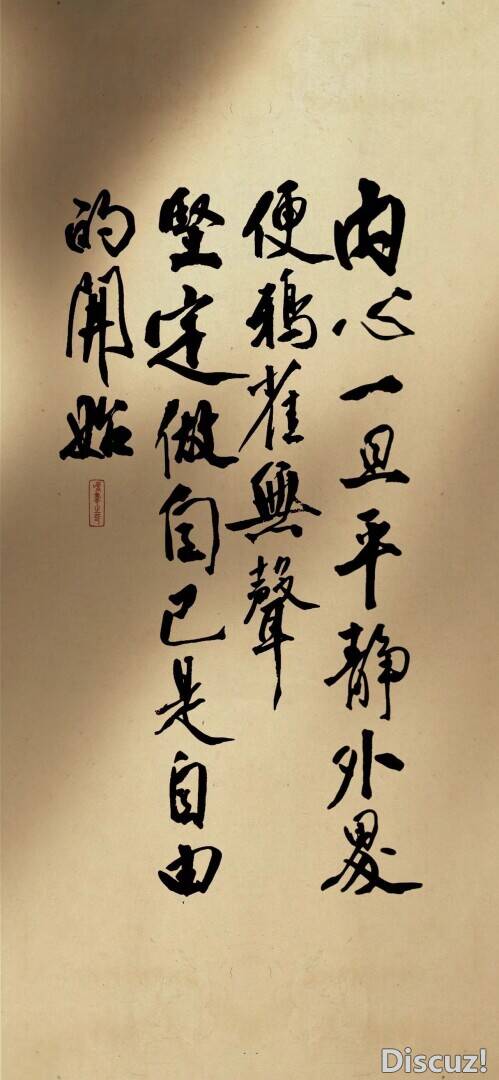 内心一旦平静外界
便鸦雀無聲
堅定做自己是自由
的開始
Discuz!